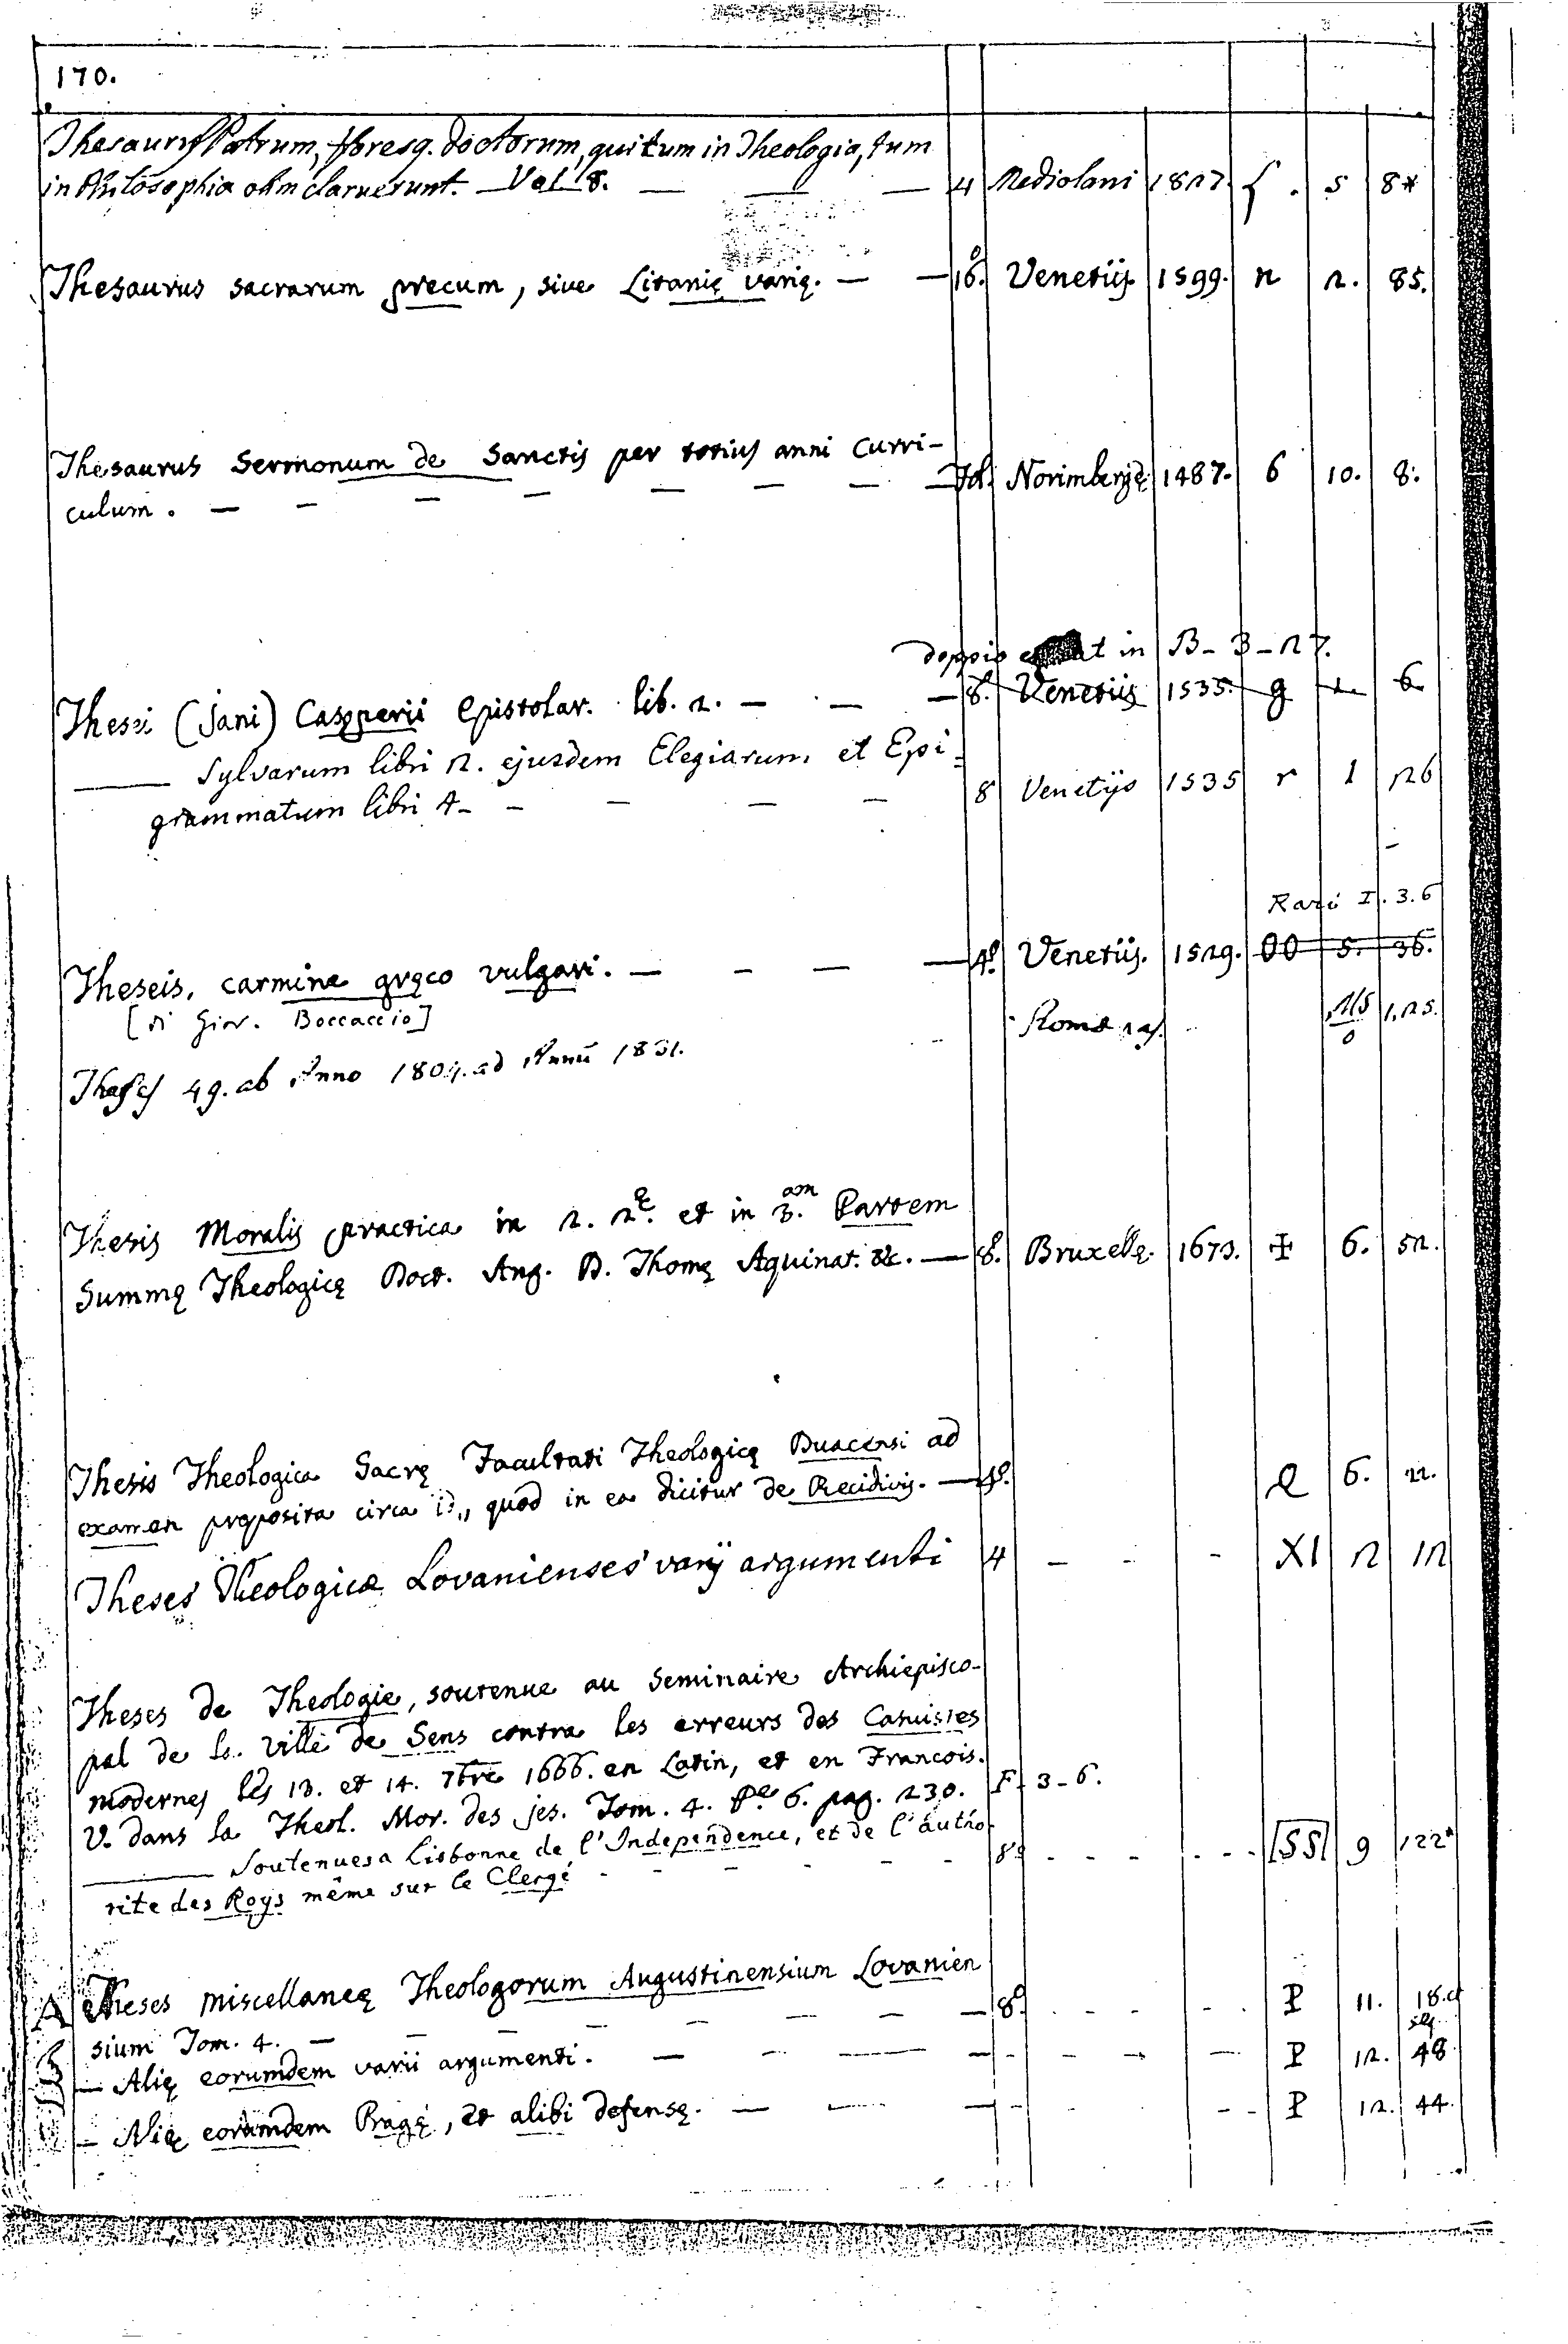 170.
Thesaurus Patrum, floresq. doctorum, qui tum in Theologia, tum
in Philosophia olim claruerunt. Vol 8. — — — 4 Mediolani 1827. f. 5 8*
Thesaurus sacrarum precum, sive Litanię varię. — — 16.º Venetiis. 1599. n 2. 85.
Thesaurus Sermonum de Sanctis per totius anni curri-
culum. — — — — — — — — Fol. Norimbergę. 1487. 6 10. 8.
doppio in B - 3 - 27.
Thessi (Jani) Casperii Epistolar. lib. 2. — — — 8.º Venetiis 1535. g 1. 6
— Sylvarum libri 2. ejusdem Elegiarum, et Epi=
grammatum libri 4 - - — — — 8 Venetijs 1535 r 1 26
Rari I. 3. 6
Theseis, carmine gręco vulgari. — — — — 4.º Venetiis. 1529. OO 5. 36.
[di Giov. Boccaccio]
Theses 49. ab Anno 1804. ad Annū 1831. Romæ 1,25.
Thesis Moralis practica in 2. 2.ę et in 3.am Partem
Summę Theologicę Doct. Ang. D. Thomę Aquinat. &c. — 8.º Bruxellę. 1673. ✠ 6. 52.
Thesis Theologica Sacrę Facultati Theologicę Duacensi ad
examen proposita circa id, quod in ea dicitur de Recidivis. — 4.º Q 6. 22.
Theses Theologicæ Lovanienses varij argumenti 4 — - - XI 2 12
Theses de Theologie, soutenue au Seminaire Archiepisco-
pal de la Ville de Sens contra les erreurs des Casuistes
modernes les 13. et 14. 7bre 1666. en Latin, et en Francois.
V. dans la Theol. Mor. des jes. Tom. 4. Pe 6. pag. 230. F - 3 - 6.
— Soutenues a Lisbonne de l'Independence, et de l'autho-
rite des Roys même sur le Clergé - - - - - - 8.º - - - - - - SS 9 122*
A Theses miscellaneę Theologorum Augustinensium Lovanien
sium Tom. 4. — — — — — — — — 8.º - - - - - P 11. 18. et seq.
— Alię eorumdem varii argumenti. — - — — - - - — — P 12. 48.
— Alię eorumdem Pragę, et alibi defensę. — — — - - - P 12. 44.